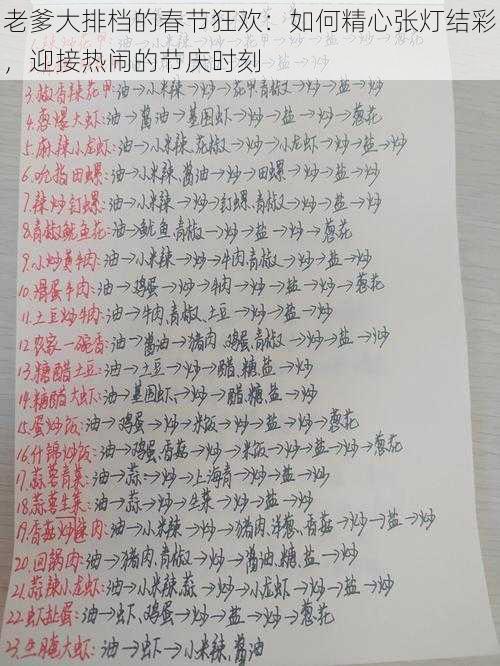 老爹大排档的春节狂欢：如何精心张灯结彩
，迎接热闹的节庆时刻
3.椒香辣花甲:油→小米辣→炒→花甲青椒→炒→盐→炒
4.葱爆大虾:油→酱油→基围虾→炒→盐→炒→葱花
5.麻辣小龙虾:油→小米辣、花椒→炒→小龙虾→炒→盐→炒
6.吮指田螺:油→小米辣、酱油→炒→田螺→炒→盐→炒
7.辣炒钉螺:油→小米辣→炒→钉螺、青椒→炒→盐→炒
8.青椒鱿鱼花:油→鱿鱼、青椒→炒→盐→炒→葱花
9.小炒黄牛肉:油→小米辣→炒→牛肉、青椒→炒→盐→炒
10.滑蛋牛肉:油→鸡蛋→炒→牛肉→炒→盐→炒→葱花
11.土豆炒牛肉:油→牛肉、青椒、土豆→炒→盐→炒
12.农家一碗香:油→酱油→猪肉、鸡蛋、青椒→炒→盐→炒
13.糖醋土豆:油→土豆→炒→醋、糖、盐→炒
14.糖醋大虾:油→基围虾→炒→醋、糖、盐→炒
15.蛋炒饭:油→鸡蛋→炒→米饭→炒→盐→炒→葱花
16.什锦炒饭:油→鸡蛋、香菇→炒→米饭→炒→盐→炒→葱花
17.蒜蓉青菜:油→蒜→炒→上海青→炒→盐→炒
18.蒜蓉生菜:油→蒜→炒→生菜→炒→盐→炒
19.香菇炒辣肉:油→小米辣→炒→猪肉、洋葱、香菇→炒→盐→炒
20.回锅肉:油→猪肉、青椒→炒→酱油、糖、盐→炒
21.蒜辣小龙虾:油→小米辣、蒜→炒→小龙虾→炒→盐→炒
22.虾扯蛋:油→虾、鸡蛋→炒→盐→炒→葱花
23.生腌大虾:油→虾→小米辣、酱油